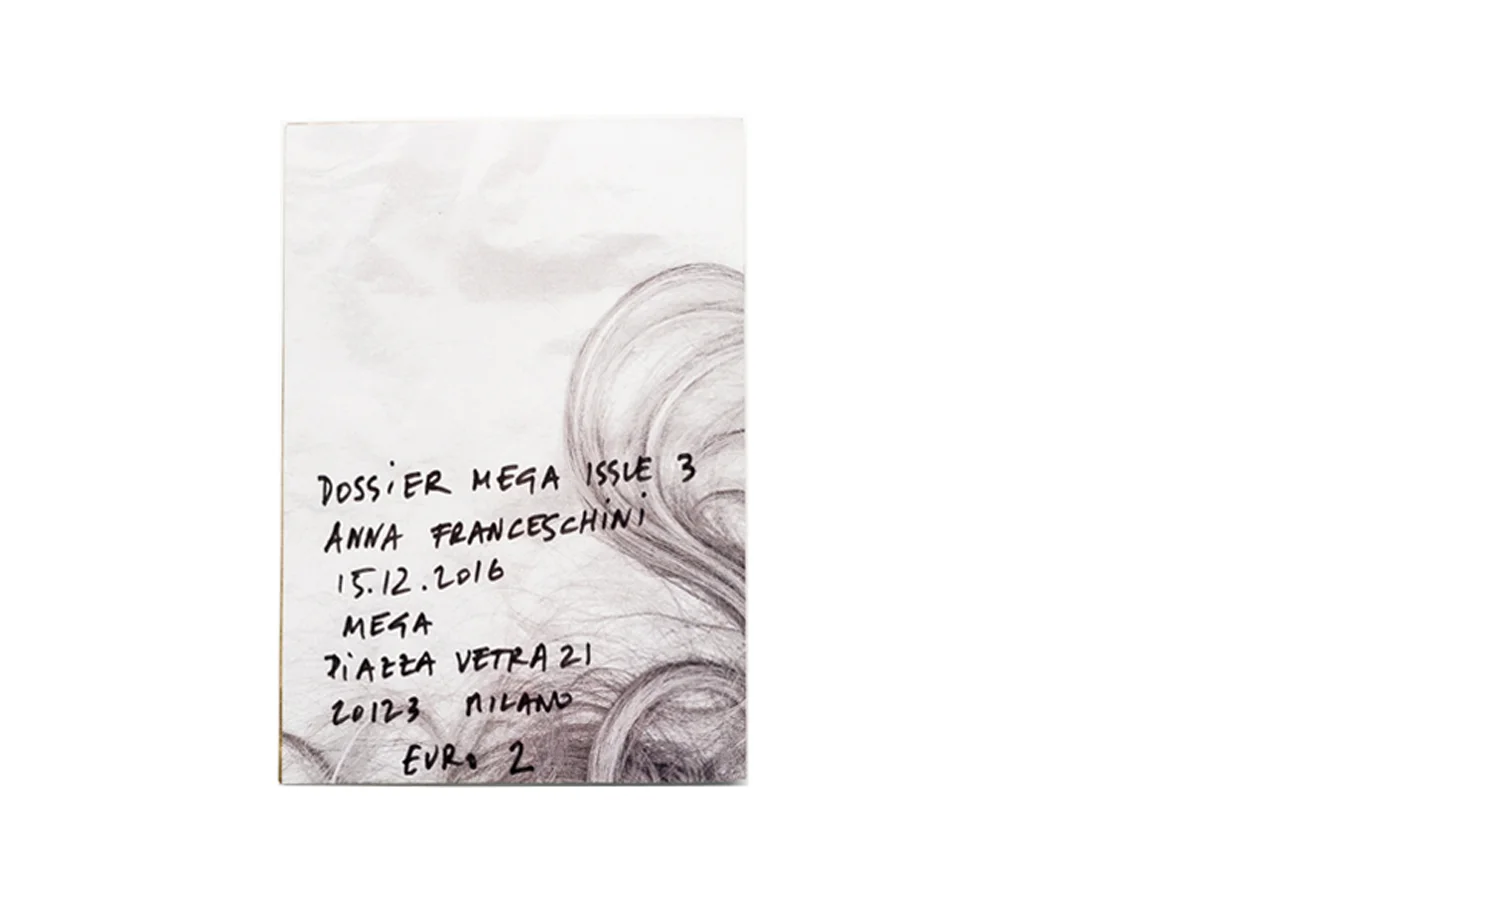 DOSSiER MEGA ISSUE 3
ANNA FRANCESCHiNi
15.12.2016
MEGA
PiAZZA VETRA 21
20123 MILANO
EURO 2